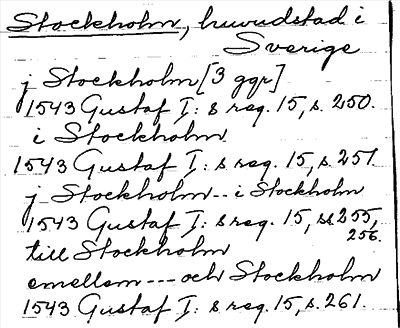 Stockholm, huvudstad i
Sverige
j Stockholm [3 ggr]
1543 Gustaf I: s reg. 15, s. 250.
i Stockholm
1543 Gustaf I: s reg. 15, s. 251.
j Stockholm -- i Stockholm
1543 Gustaf I: s reg. 15, ss. 255,
256.
till Stockholm
emellom --- och Stockholm
1543 Gustaf I: s reg. 15, s. 261.